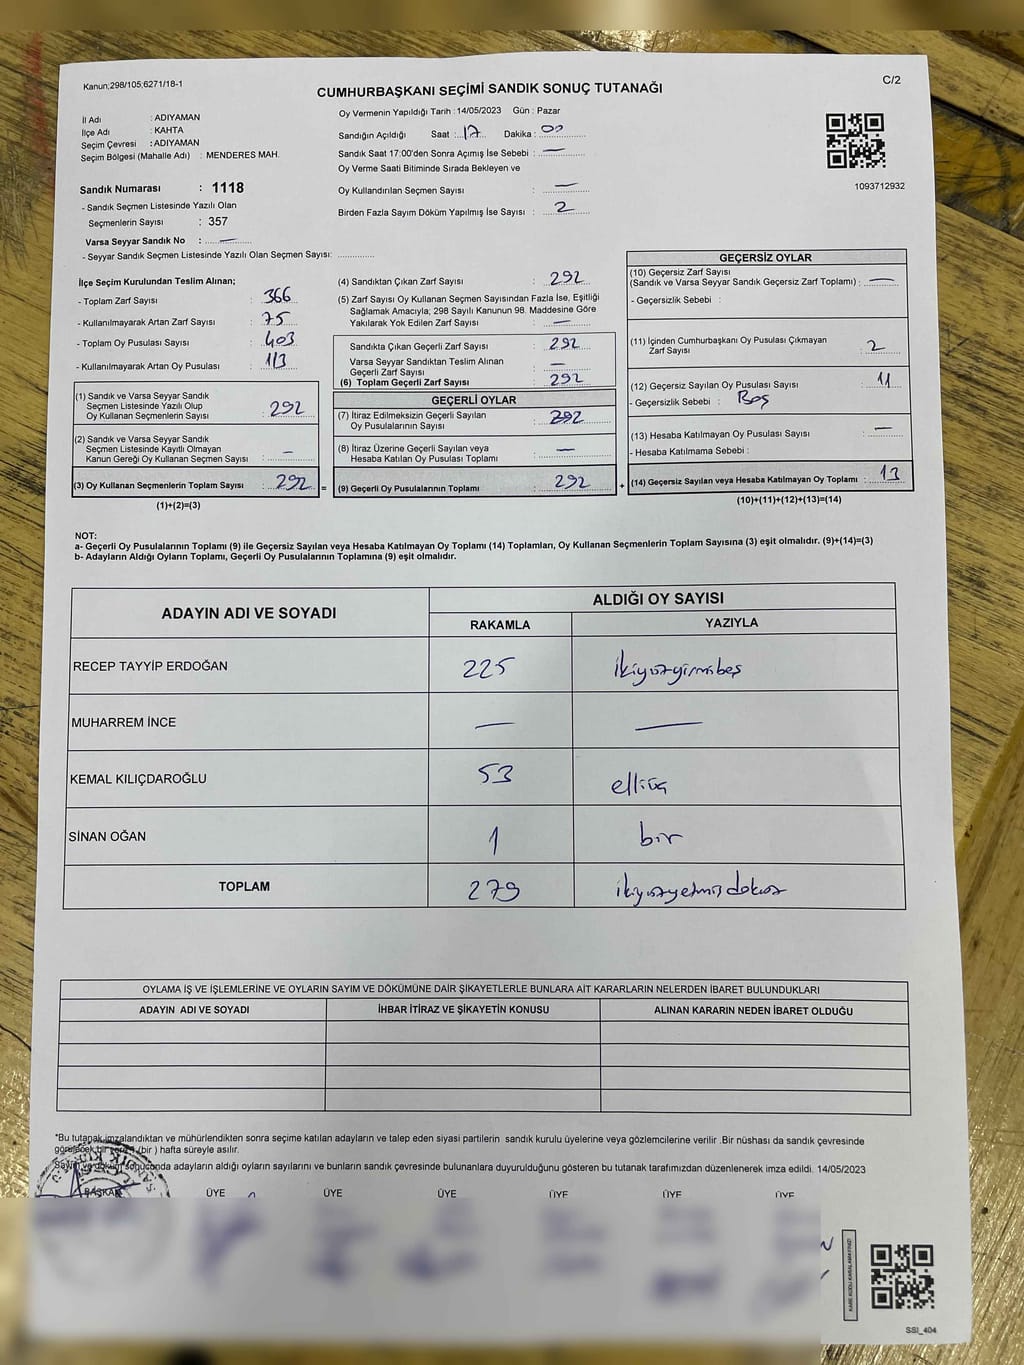 Kanun;298/105;6271/18-1
C/2
CUMHURBAŞKANI SEÇİMİ SANDIK SONUÇ TUTANAĞI
İl Adı : ADIYAMAN
İlçe Adı : KAHTA
Seçim Çevresi : ADIYAMAN
Seçim Bölgesi (Mahalle Adı) : MENDERES MAH.
Sandık Numarası : 1118
- Sandık Seçmen Listesinde Yazılı Olan
Seçmenlerin Sayısı : 357
Varsa Seyyar Sandık No : —
- Seyyar Sandık Seçmen Listesinde Yazılı Olan Seçmen Sayısı:
Oy Vermenin Yapıldığı Tarih : 14/05/2023 Gün : Pazar
Sandığın Açıldığı Saat : 17 Dakika : 00
Sandık Saat 17:00'den Sonra Açımış İse Sebebi : —
Oy Verme Saati Bitiminde Sırada Bekleyen ve
Oy Kullandırılan Seçmen Sayısı : —
Birden Fazla Sayım Döküm Yapılmış İse Sayısı : 2
1093712932
İlçe Seçim Kurulundan Teslim Alınan;
- Toplam Zarf Sayısı : 366
- Kullanılmayarak Artan Zarf Sayısı : 75
- Toplam Oy Pusulası Sayısı : 403
- Kullanılmayarak Artan Oy Pusulası : 113
(1) Sandık ve Varsa Seyyar Sandık
Seçmen Listesinde Yazılı Olup
Oy Kullanan Seçmenlerin Sayısı : 292
(2) Sandık ve Varsa Seyyar Sandık
Seçmen Listesinde Kayıtlı Olmayan
Kanun Gereği Oy Kullanan Seçmen Sayısı : —
(3) Oy Kullanan Seçmenlerin Toplam Sayısı : 292 =
(1)+(2)=(3)
(4) Sandıktan Çıkan Zarf Sayısı : 292
(5) Zarf Sayısı Oy Kullanan Seçmen Sayısından Fazla İse, Eşitliği
Sağlamak Amacıyla; 298 Sayılı Kanunun 98. Maddesine Göre
Yakılarak Yok Edilen Zarf Sayısı : —
Sandıkta Çıkan Geçerli Zarf Sayısı : 292
Varsa Seyyar Sandıktan Teslim Alınan
Geçerli Zarf Sayısı : —
(6) Toplam Geçerli Zarf Sayısı : 292
GEÇERLİ OYLAR
(7) İtiraz Edilmeksizin Geçerli Sayılan
Oy Pusulalarının Sayısı : 292
(8) İtiraz Üzerine Geçerli Sayılan veya
Hesaba Katılan Oy Pusulası Toplamı : —
(9) Geçerli Oy Pusulalarının Toplamı : 292 +
GEÇERSİZ OYLAR
(10) Geçersiz Zarf Sayısı
(Sandık ve Varsa Seyyar Sandık Geçersiz Zarf Toplamı) : —
- Geçersizlik Sebebi :
(11) İçinden Cumhurbaşkanı Oy Pusulası Çıkmayan
Zarf Sayısı : 2
(12) Geçersiz Sayılan Oy Pusulası Sayısı : 11
- Geçersizlik Sebebi : Boş
(13) Hesaba Katılmayan Oy Pusulası Sayısı : —
- Hesaba Katılmama Sebebi :
(14) Geçersiz Sayılan veya Hesaba Katılmayan Oy Toplamı : 13
(10)+(11)+(12)+(13)=(14)
NOT:
a- Geçerli Oy Pusulalarının Toplamı (9) ile Geçersiz Sayılan veya Hesaba Katılmayan Oy Toplamı (14) Toplamları, Oy Kullanan Seçmenlerin Toplam Sayısına (3) eşit olmalıdır. (9)+(14)=(3)
b- Adayların Aldığı Oyların Toplamı, Geçerli Oy Pusulalarının Toplamına (9) eşit olmalıdır.
ADAYIN ADI VE SOYADI
ALDIĞI OY SAYISI
RAKAMLA YAZIYLA
RECEP TAYYİP ERDOĞAN 225 ikiyüzyirmibeş
MUHARREM İNCE — —
KEMAL KILIÇDAROĞLU 53 elliüç
SİNAN OĞAN 1 bir
TOPLAM 279 ikiyüzyetmişdokuz
OYLAMA İŞ VE İŞLEMLERİNE VE OYLARIN SAYIM VE DÖKÜMÜNE DAİR ŞİKAYETLERLE BUNLARA AİT KARARLARIN NELERDEN İBARET BULUNDUKLARI
ADAYIN ADI VE SOYADI İHBAR İTİRAZ VE ŞİKAYETİN KONUSU ALINAN KARARIN NEDEN İBARET OLDUĞU
*Bu tutanak imzalandıktan ve mühürlendikten sonra seçime katılan adayların ve talep eden siyasi partilerin sandık kurulu üyelerine veya gözlemcilerine verilir .Bir nüshası da sandık çevresinde
görülecek bir yere 1 (bir ) hafta süreyle asılır.
Sayım ve döküm sonucunda adayların aldığı oyların sayılarını ve bunların sandık çevresinde bulunanlara duyurulduğunu gösteren bu tutanak tarafımızdan düzenlenerek imza edildi. 14/05/2023
BAŞKAN ÜYE ÜYE ÜYE ÜYE ÜYE ÜYE
KARE KODU KARALAMAYINIZ!
SSI_404